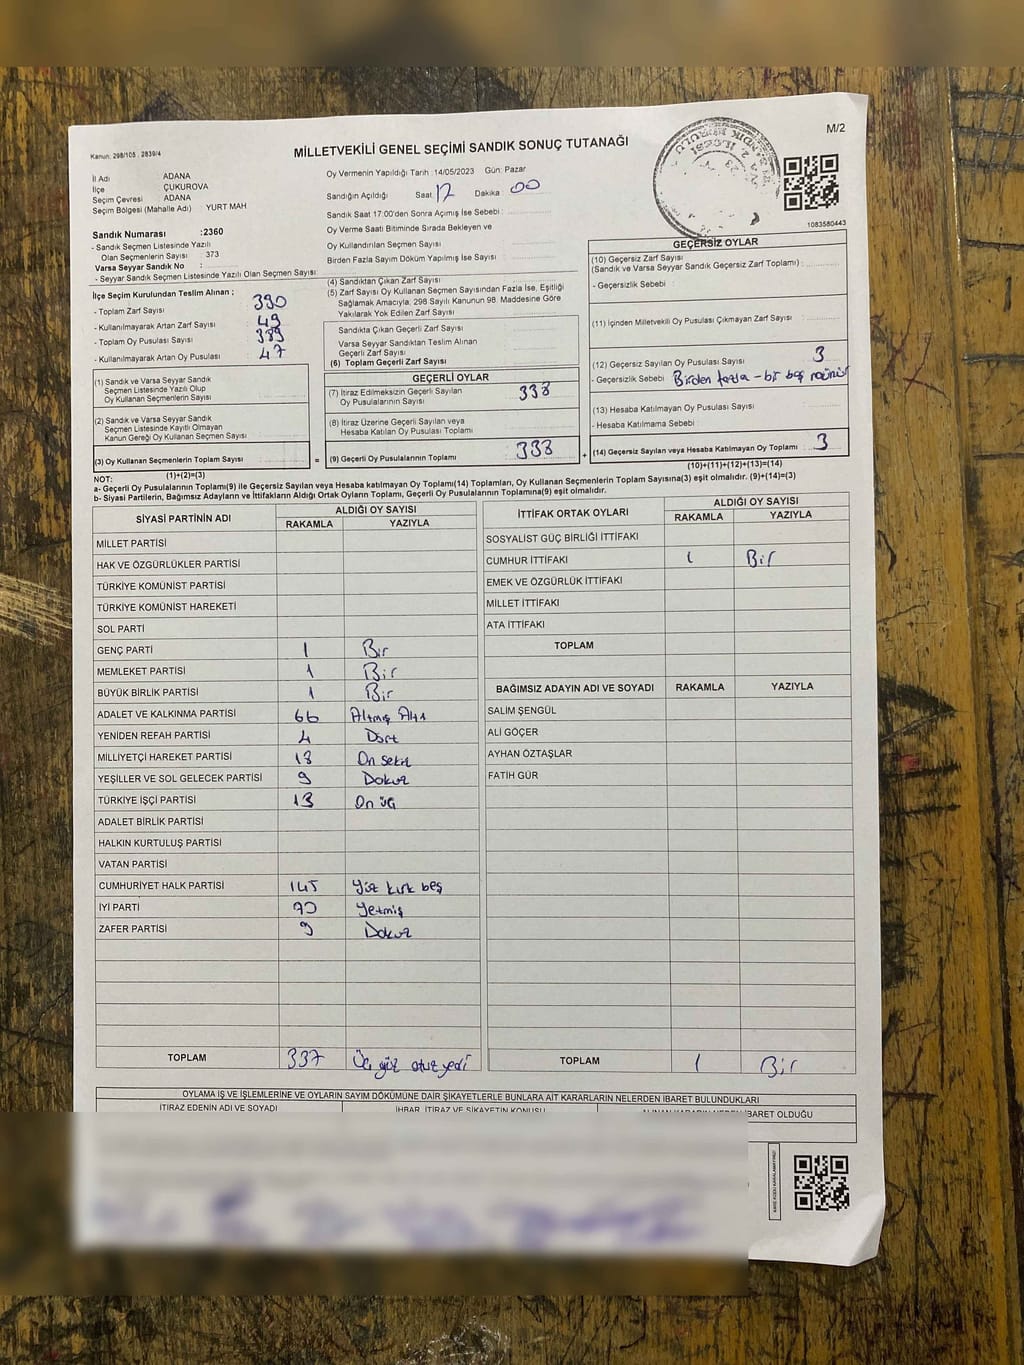 Kanun: 298/105 , 2839/4
MİLLETVEKİLİ GENEL SEÇİMİ SANDIK SONUÇ TUTANAĞI
M/2
İl Adı ADANA
İlçe ÇUKUROVA
Seçim Çevresi ADANA
Seçim Bölgesi (Mahalle Adı) YURT MAH
Sandık Numarası :2360
- Sandık Seçmen Listesinde Yazılı
Olan Seçmenlerin Sayısı : 373
Varsa Seyyar Sandık No :
- Seyyar Sandık Seçmen Listesinde Yazılı Olan Seçmen Sayısı:
Oy Vermenin Yapıldığı Tarih : 14/05/2023 Gün: Pazar
Sandığın Açıldığı Saat 17 Dakika 00
Sandık Saat 17:00'den Sonra Açımış İse Sebebi :
Oy Verme Saati Bitiminde Sırada Bekleyen ve
Oy Kullandırılan Seçmen Sayısı :
Birden Fazla Sayım Döküm Yapılmış İse Sayısı :
1083580443
İlçe Seçim Kurulundan Teslim Alınan ;
- Toplam Zarf Sayısı : 390
- Kullanılmayarak Artan Zarf Sayısı : 49
- Toplam Oy Pusulası Sayısı : 389
- Kullanılmayarak Artan Oy Pusulası : 47
(1) Sandık ve Varsa Seyyar Sandık
Seçmen Listesinde Yazılı Olup
Oy Kullanan Seçmenlerin Sayısı :
(2) Sandık ve Varsa Seyyar Sandık
Seçmen Listesinde Kayıtlı Olmayan
Kanun Gereği Oy Kullanan Seçmen Sayısı :
(3) Oy Kullanan Seçmenlerin Toplam Sayısı :
(1)+(2)=(3)
(4) Sandıktan Çıkan Zarf Sayısı
(5) Zarf Sayısı Oy Kullanan Seçmen Sayısından Fazla İse, Eşitliği
Sağlamak Amacıyla, 298 Sayılı Kanunun 98. Maddesine Göre
Yakılarak Yok Edilen Zarf Sayısı :
Sandıkta Çıkan Geçerli Zarf Sayısı :
Varsa Seyyar Sandıktan Teslim Alınan
Geçerli Zarf Sayısı :
(6) Toplam Geçerli Zarf Sayısı :
GEÇERLİ OYLAR
(7) İtiraz Edilmeksizin Geçerli Sayılan
Oy Pusulalarının Sayısı : 338
(8) İtiraz Üzerine Geçerli Sayılan veya
Hesaba Katılan Oy Pusulası Toplamı :
= (9) Geçerli Oy Pusulalarının Toplamı : 338 +
GEÇERSİZ OYLAR
(10) Geçersiz Zarf Sayısı
(Sandık ve Varsa Seyyar Sandık Geçersiz Zarf Toplamı) :
- Geçersizlik Sebebi :
(11) İçinden Milletvekili Oy Pusulası Çıkmayan Zarf Sayısı :
(12) Geçersiz Sayılan Oy Pusulası Sayısı : 3
- Geçersizlik Sebebi : Birden fazla - bir boş mühür
(13) Hesaba Katılmayan Oy Pusulası Sayısı :
- Hesaba Katılmama Sebebi :
(14) Geçersiz Sayılan veya Hesaba Katılmayan Oy Toplamı : 3
(10)+(11)+(12)+(13)=(14)
NOT:
a- Geçerli Oy Pusulalarının Toplamı(9) ile Geçersiz Sayılan veya Hesaba Katılmayan Oy Toplamı(14) Toplamları, Oy Kullanan Seçmenlerin Toplam Sayısına(3) eşit olmalıdır. (9)+(14)=(3)
b- Siyasi Partilerin, Bağımsız Adayların ve İttifakların Aldığı Ortak Oyların Toplamı, Geçerli Oy Pusulalarının Toplamına(9) eşit olmalıdır.
SİYASİ PARTİNİN ADI ALDIĞI OY SAYISI
RAKAMLA YAZIYLA
MİLLET PARTİSİ
HAK VE ÖZGÜRLÜKLER PARTİSİ
TÜRKİYE KOMÜNİST PARTİSİ
TÜRKİYE KOMÜNİST HAREKETİ
SOL PARTİ
GENÇ PARTİ 1 Bir
MEMLEKET PARTİSİ 1 Bir
BÜYÜK BİRLİK PARTİSİ 1 Bir
ADALET VE KALKINMA PARTİSİ 66 Altmış Altı
YENİDEN REFAH PARTİSİ 4 Dört
MİLLİYETÇİ HAREKET PARTİSİ 18 On sekiz
YEŞİLLER VE SOL GELECEK PARTİSİ 9 Dokuz
TÜRKİYE İŞÇİ PARTİSİ 13 On üç
ADALET BİRLİK PARTİSİ
HALKIN KURTULUŞ PARTİSİ
VATAN PARTİSİ
CUMHURİYET HALK PARTİSİ 145 Yüz kırk beş
İYİ PARTİ 70 Yetmiş
ZAFER PARTİSİ 9 Dokuz
TOPLAM 337 Üç yüz otuz yedi
İTTİFAK ORTAK OYLARI ALDIĞI OY SAYISI
RAKAMLA YAZIYLA
SOSYALİST GÜÇ BİRLİĞİ İTTİFAKI
CUMHUR İTTİFAKI 1 Bir
EMEK VE ÖZGÜRLÜK İTTİFAKI
MİLLET İTTİFAKI
ATA İTTİFAKI
TOPLAM
BAĞIMSIZ ADAYIN ADI VE SOYADI RAKAMLA YAZIYLA
SALİM ŞENGÜL
ALİ GÖÇER
AYHAN ÖZTAŞLAR
FATİH GÜR
TOPLAM 1 Bir
OYLAMA İŞ VE İŞLEMLERİNE VE OYLARIN SAYIM DÖKÜMÜNE DAİR ŞİKAYETLERLE BUNLARA AİT KARARLARIN NELERDEN İBARET BULUNDUKLARI
İTİRAZ EDENİN ADI VE SOYADI İHBAR, İTİRAZ VE ŞİKAYETİN KONUSU ALINAN KARARIN NEDEN İBARET OLDUĞU